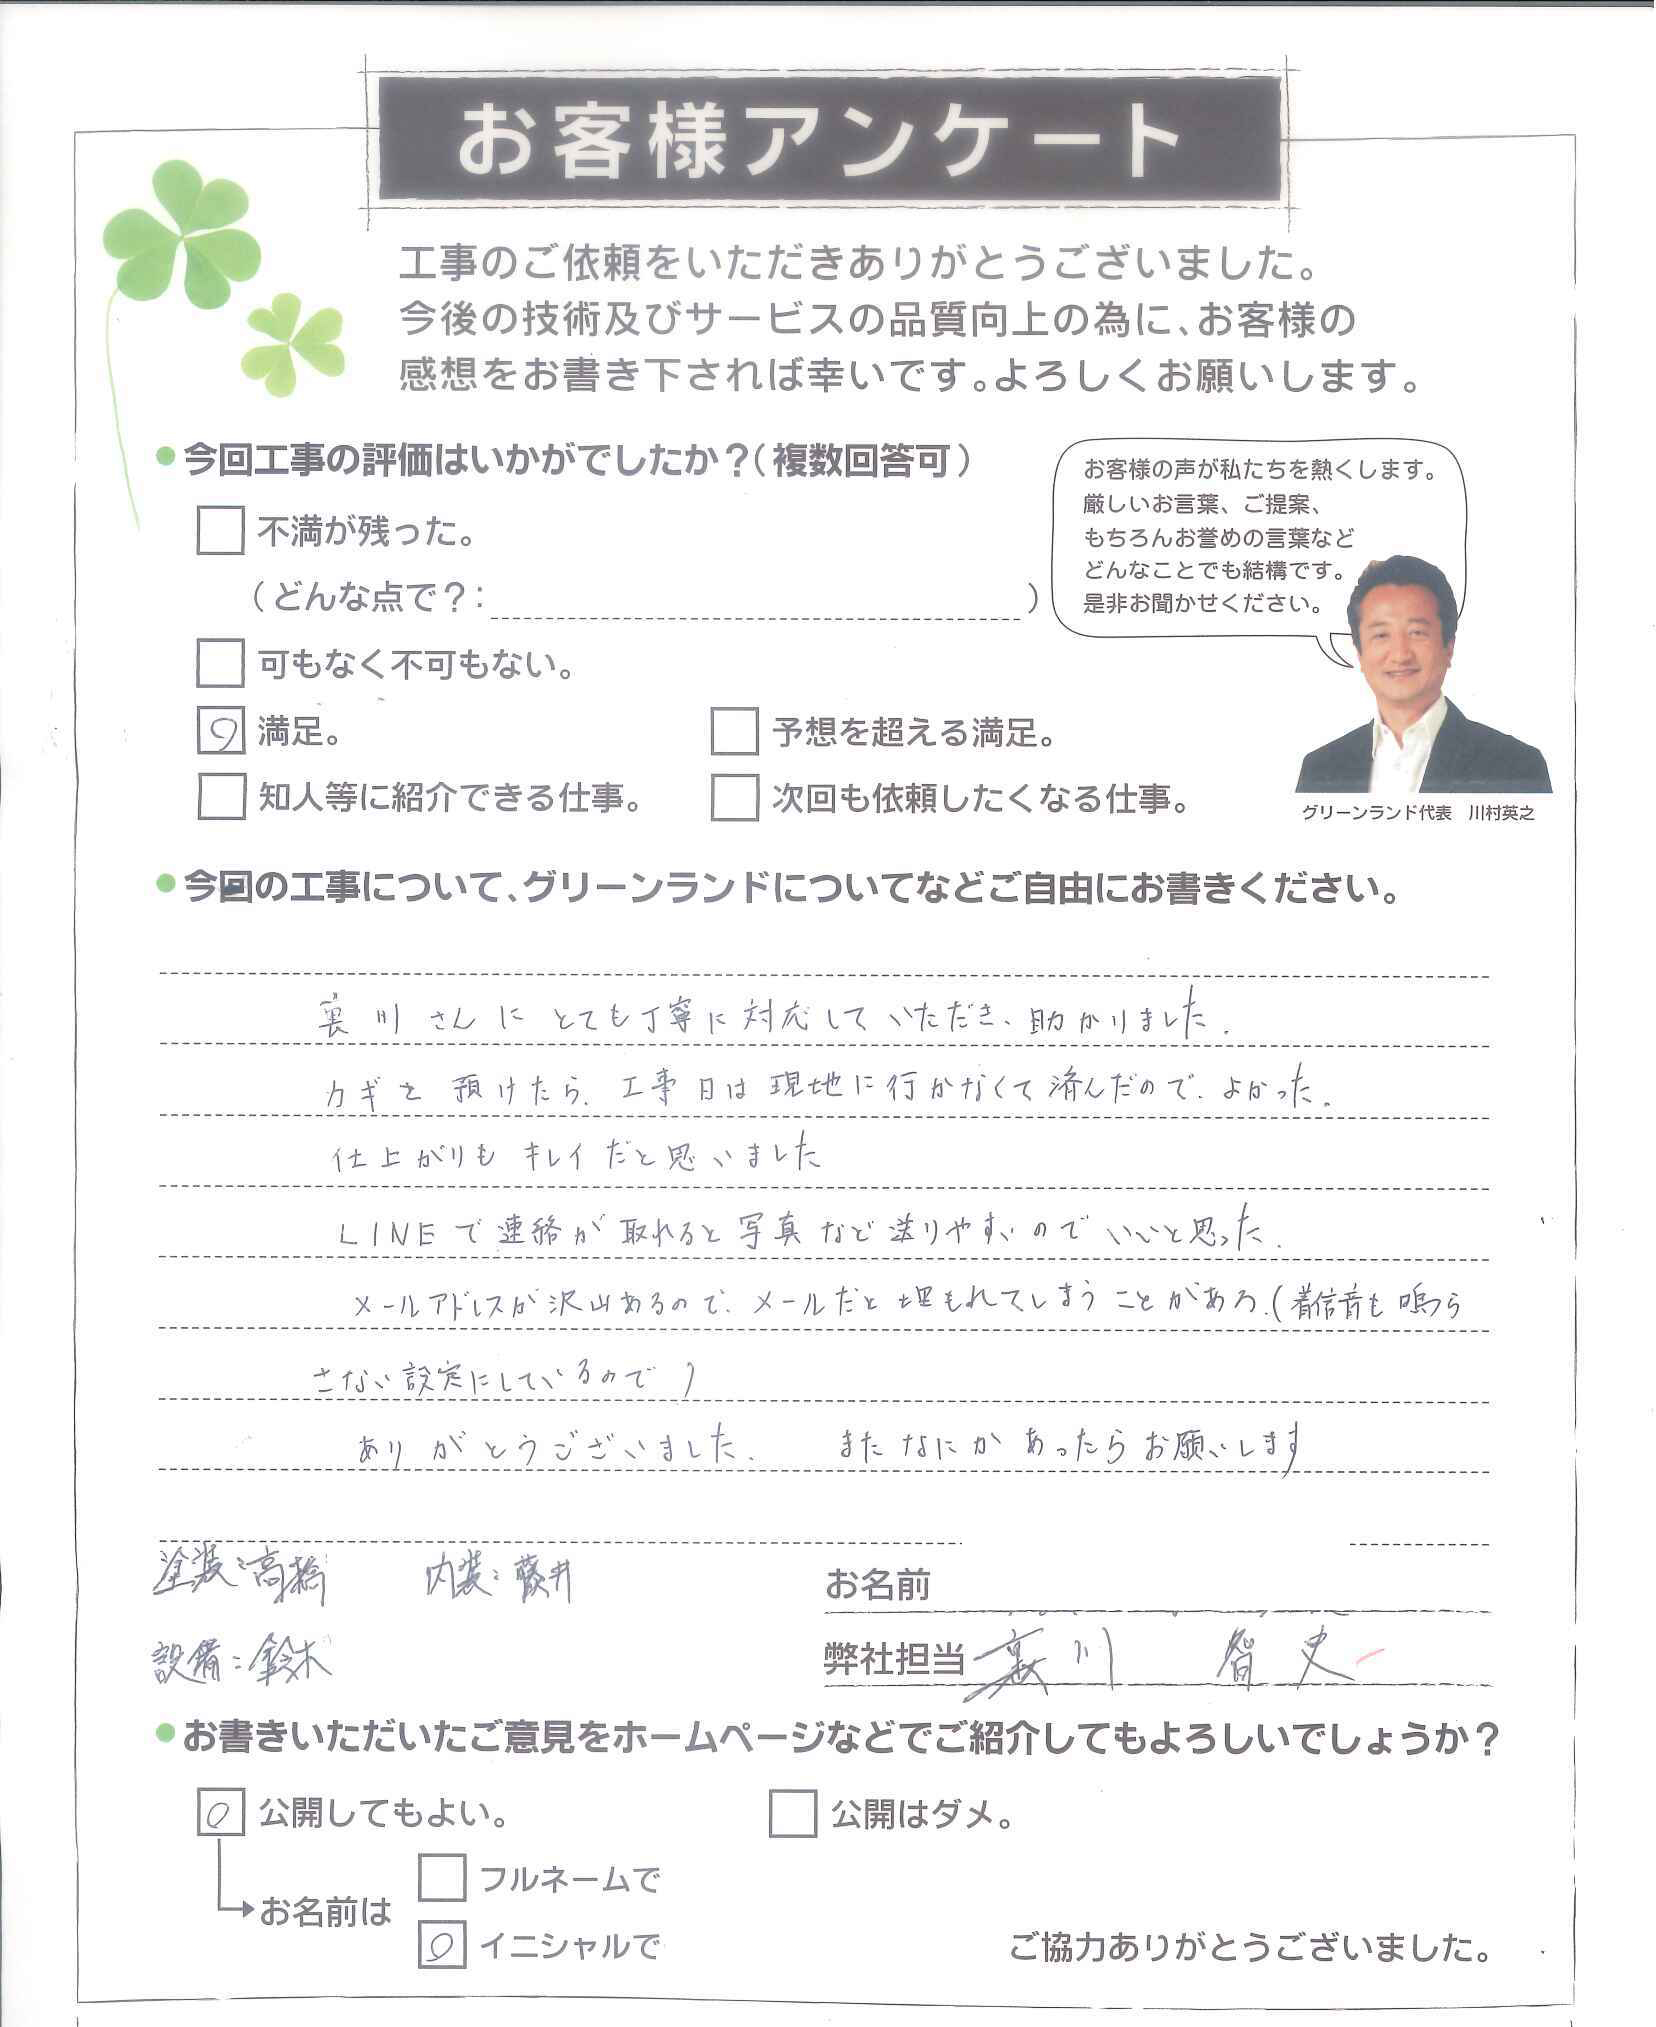 お客様アンケート
工事のご依頼をいただきありがとうございました。
今後の技術及びサービスの品質向上の為に、お客様の
感想をお書き下されば幸いです。よろしくお願いします。
今回工事の評価はいかがでしたか？（複数回答可）
不満が残った。
（どんな点で？： ）
可もなく不可もない。
満足。
予想を超える満足。
知人等に紹介できる仕事。
次回も依頼したくなる仕事。
お客様の声が私たちを熱くします。
厳しいお言葉、ご提案、
もちろんお誉めの言葉など
どんなことでも結構です。
是非お聞かせください。
グリーンランド代表　川村英之
今回の工事について、グリーンランドについてなどご自由にお書きください。
裏川さんにとても丁寧に対応していただき、助かりました。
カギを預けたら、工事日は現地に行かなくて済んだので、よかった。
仕上がりもキレイだと思いました
LINEで連絡が取れると写真など送りやすいのでいいと思った。
メールアドレスが沢山あるので、メールだと埋もれてしまうことがある。（着信音も鳴ら
さない設定にしているので）
ありがとうございました。　またなにかあったらお願いします
塗装：高橋　内装：藤井
設備：鈴木
お名前
弊社担当 裏川 智史
お書きいただいたご意見をホームページなどでご紹介してもよろしいでしょうか？
公開してもよい。
公開はダメ。
お名前は
フルネームで
イニシャルで
ご協力ありがとうございました。